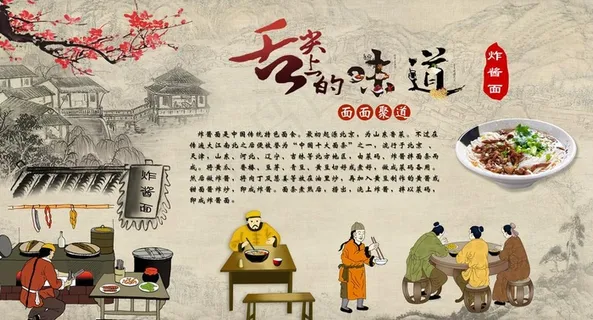 舌尖上的味道
炸酱面
面面聚道
炸酱面是中国传统特色面食。最初起源北京，为山东鲁菜。不过在
传遍大江南北之后便被誉为“中国十大面条”之一，流行于北京、
天津，山东，河北，辽宁，吉林等北方地区，由菜码、炸酱拌面条而
成。将黄瓜、香椿、豆芽、青豆、黄豆切好或煮好，做成菜码备用。
然后做炸酱，将肉丁及葱姜等放在油里炒，再加入黄豆制作的黄酱或
甜面酱炸炒，即成炸酱。面条煮熟后，捞出，浇上炸酱，拌以菜码，
即成炸酱面。
炸酱面